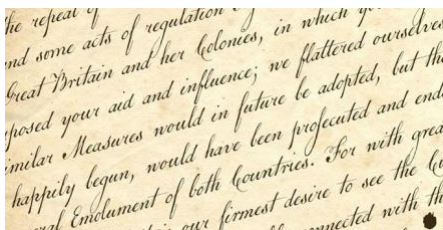 the repeal of
nd some acts of regulation
Great Britain and her Colonies, in which yo
posed your aid and influence; we flattered ourselves
imilar Measures would in future be adopted, but th
happily begun, would have been prosecuted and end
eral Emolument of both Countries. For with grea
our firmest desire to see the C
connected with th